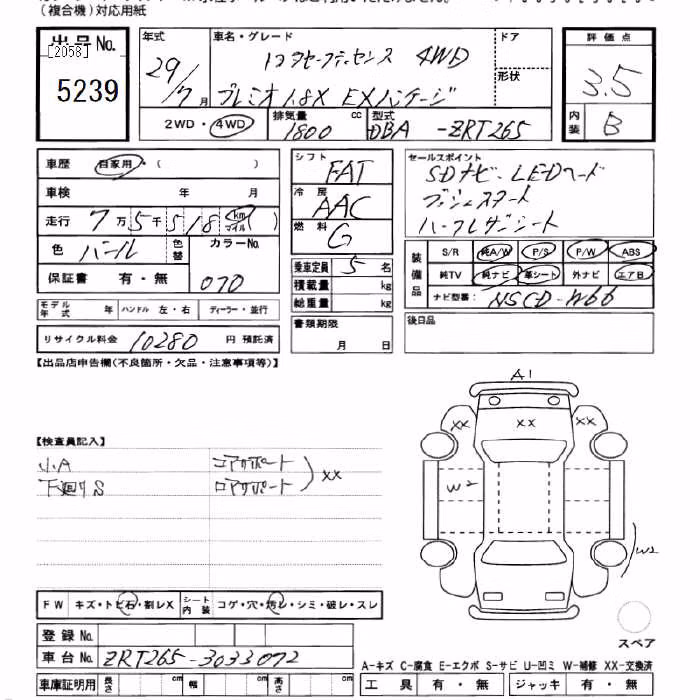 (複合機)対応用紙
出品No.
[2058]
5239
年式
29/7月
車名・グレード
トヨタセーフティセンス 4WD
プレミオ 1.8X EXパッケージ
ドア
形状
評価点
3.5
内装
B
2WD・4WD
排気量 cc
1800
型式
DBA -ZRT265
車歴 自家用・( )
車検 年 月
走行 7万5千518 km マイル ( )
色 パール 色替
カラーNo.
070
保証書 有・無
モデル年式 年 ハンドル 左・右 ディーラー・並行
リサイクル料金 10280 円 預託済
シフト FAT
冷房 AAC
燃料 G
乗車定員 5 名
積載量 kg
総重量 kg
書類期限
月 日
セールスポイント
SDナビ・LEDヘッド
プッシュスタート
ハーフレザーシート
装備品
S/R 純A/W P/S P/W ABS
純TV 純ナビ 革シート 外ナビ エアB
ナビ型番: NSCD-W66
後日品
【出品店申告欄(不良箇所・欠品・注意事項等)】
【検査員記入】
小A
下廻りS
コアサポート
ロアサポート
XX
A1
XX XX XX
W2
W2
スペア
FW キズ・トビ石・割レX
シート内装 コゲ・穴・汚レ・シミ・破レ・スレ
登録No.
車台No. ZRT265-3033072
車庫証明用 長さ cm 幅 cm 高さ cm
A-キズ C-腐食 E-エクボ S-サビ U-凹ミ W-補修 XX-交換済
工具 有・無 ジャッキ 有・無